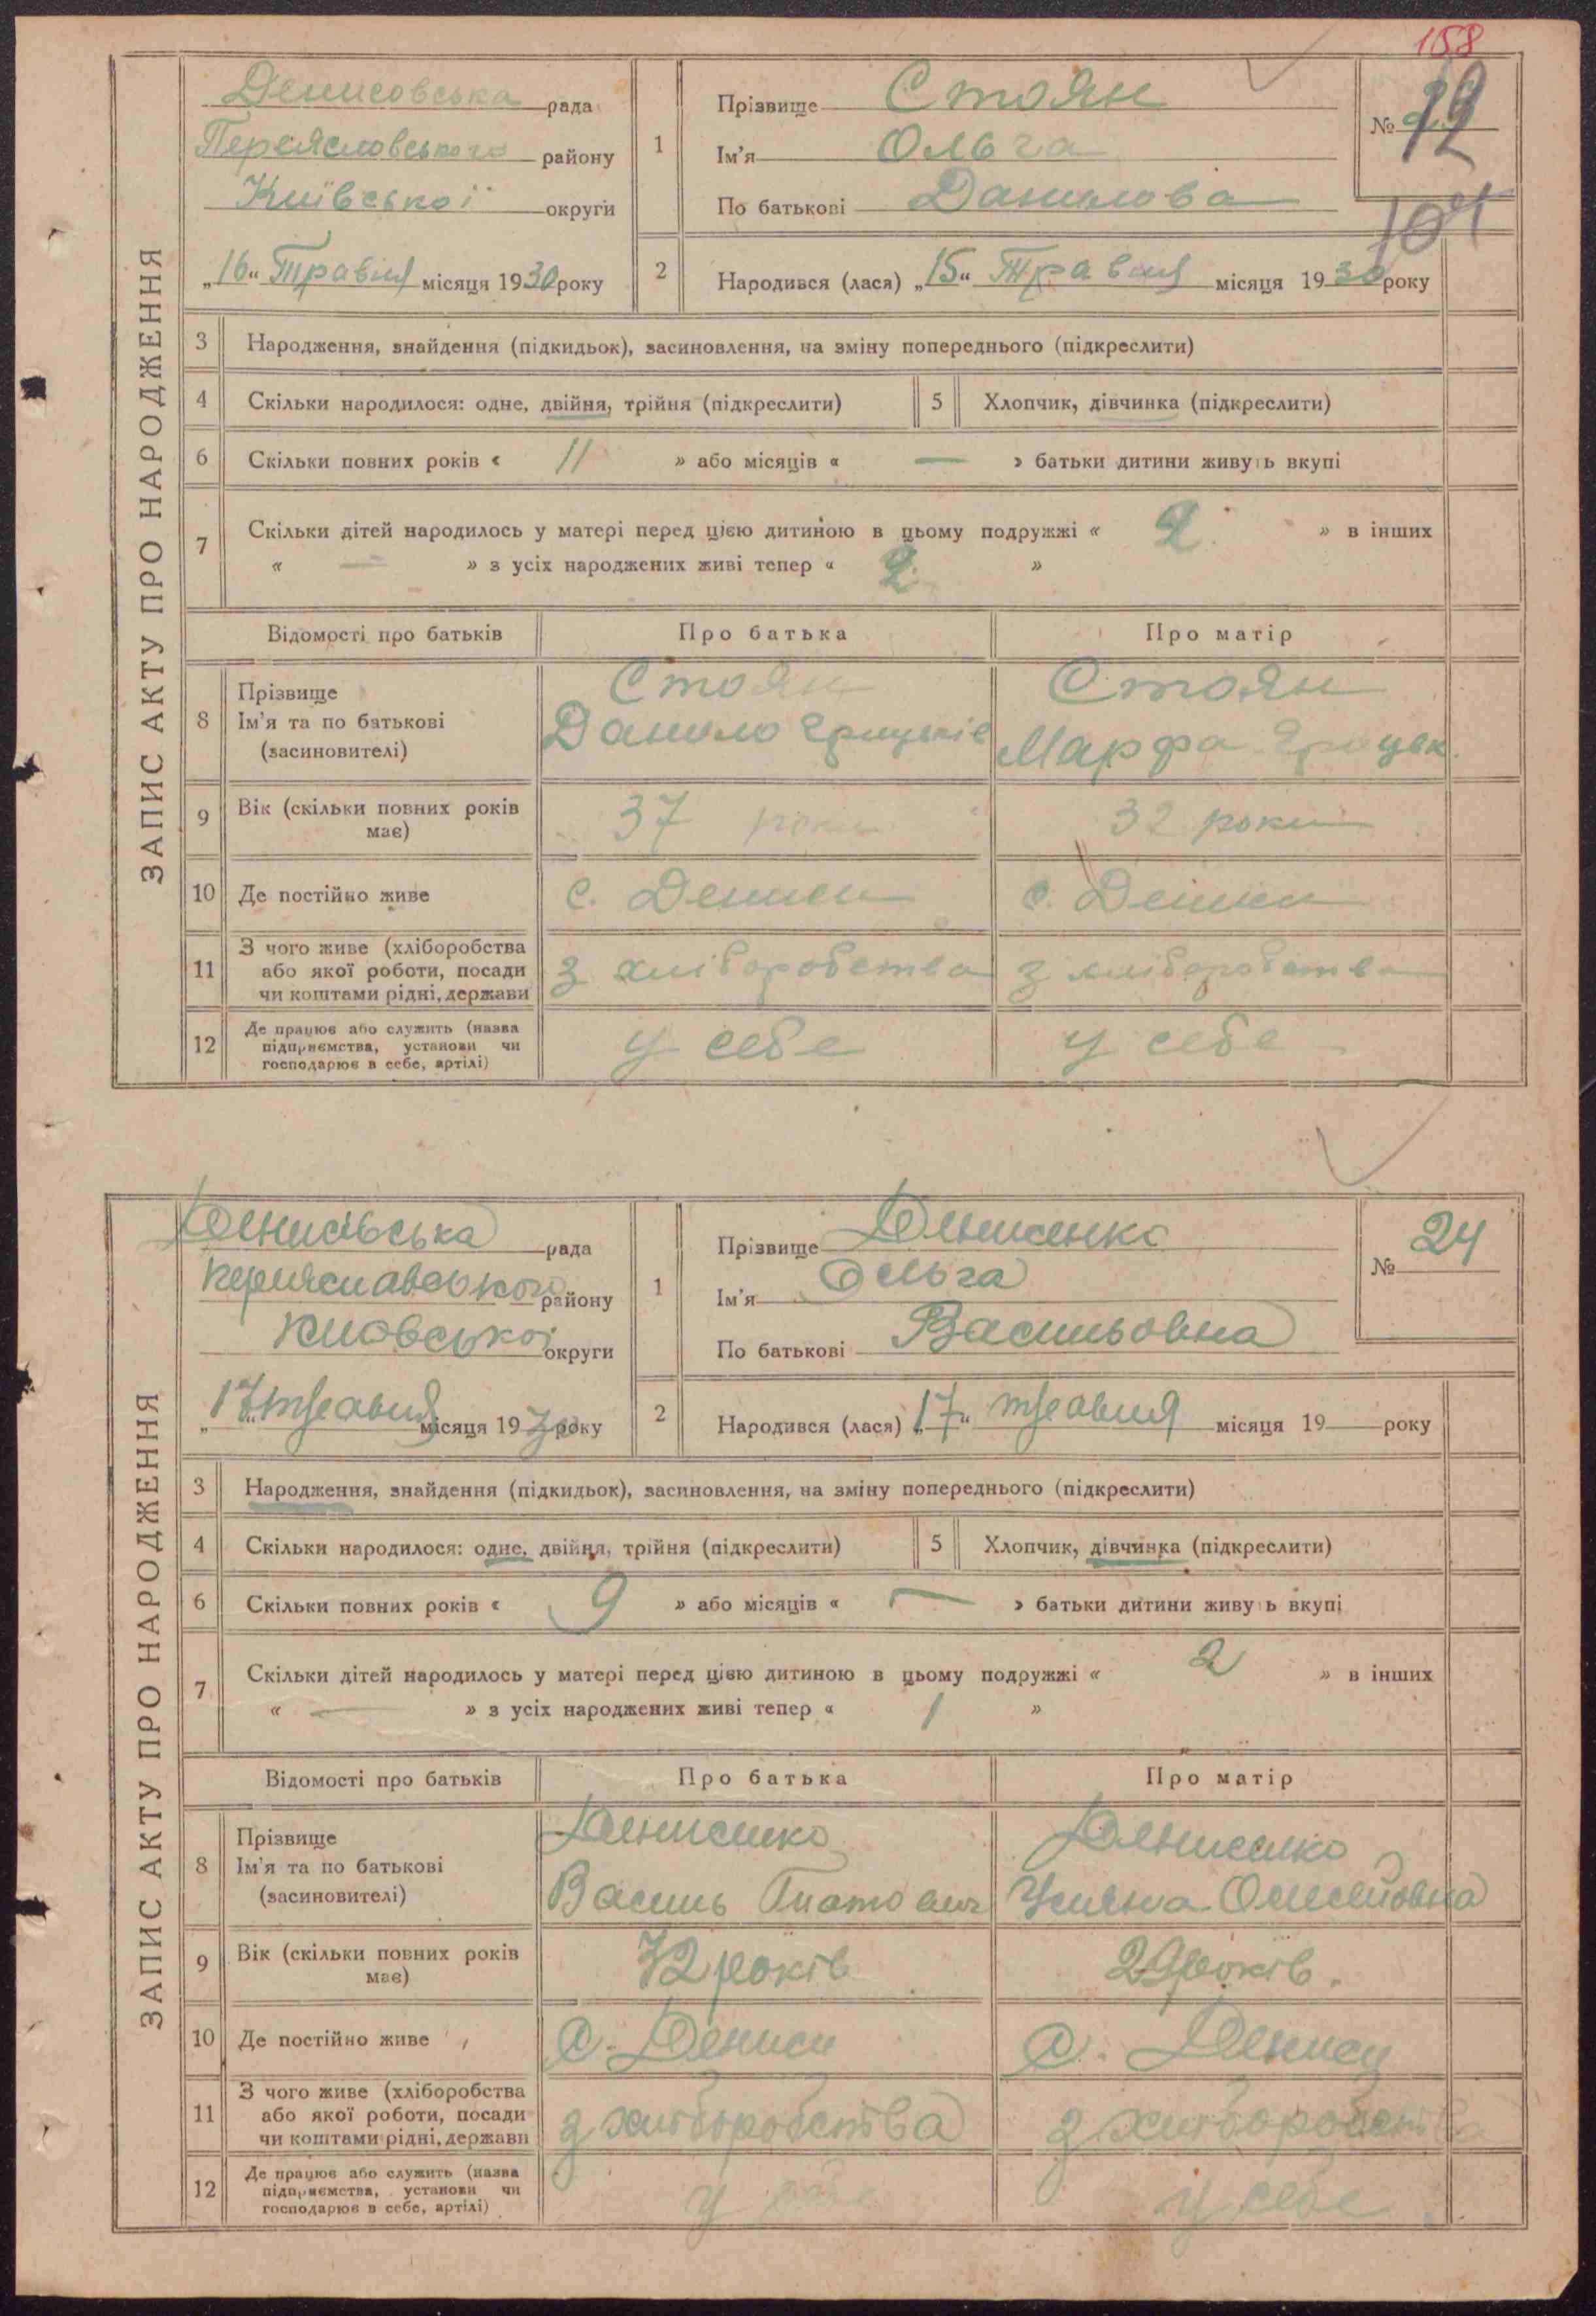 158
Денисовська рада
Переясловського району
Київської округи
„16“ Травня місяця 1930 року
1
Прізвище Стоян
Ім'я Ольга
По батькові Данилова
№
12
104
2
Народився (лася) „15“ Травня місяця 1930 року
ЗАПИС АКТУ ПРО НАРОДЖЕННЯ
3 Народження, знайдення (підкидьок), засиновлення, на зміну попереднього (підкреслити)
4 Скільки народилося: одне, двійня, трійня (підкреслити)
5 Хлопчик, дівчинка (підкреслити)
6 Скільки повних років « 11 » або місяців « — » батьки дитини живуть вкупі
7 Скільки дітей народилось у матері перед цією дитиною в цьому подружжі « 2 » в інших
« — » з усіх народжених живі тепер « 2 »
Відомості про батьків Про батька Про матір
8 Прізвище
Ім'я та по батькові
(засиновителі)
Стоян
Данило Грицьків
Стоян
Марфа
9 Вік (скільки повних років
має)
37 роки
32 роки
10 Де постійно живе
с. Дениси
с. Дениси
11 З чого живе (хліборобства
або якої роботи, посади
чи коштами рідні, держави
З хліборобства
з хліборобства
12 Де працює або служить (назва
підприємства, установи чи
господарює в себе, артілі)
у себе
у себе
Денисівська рада
Переяславського району
округи
„17“ травня місяця 1930 року
1
Прізвище Денисенко
Ім'я Ольга
По батькові Васильовна
№ 24
2
Народився (лася) „17“ травня місяця 19 року
ЗАПИС АКТУ ПРО НАРОДЖЕННЯ
3 Народження, знайдення (підкидьок), засиновлення, на зміну попереднього (підкреслити)
4 Скільки народилося: одне, двійня, трійня (підкреслити)
5 Хлопчик, дівчинка (підкреслити)
6 Скільки повних років « 9 » або місяців « — » батьки дитини живуть вкупі
7 Скільки дітей народилось у матері перед цією дитиною в цьому подружжі « 2 » в інших
« — » з усіх народжених живі тепер « 1 »
Відомості про батьків Про батька Про матір
8 Прізвище
Ім'я та по батькові
(засиновителі)
Денисенко
Василь
Денисенко
Уляна
9 Вік (скільки повних років
має)
32 років
29 років.
10 Де постійно живе
с. Дениси
с. Дениси
11 З чого живе (хліборобства
або якої роботи, посади
чи коштами рідні, держави
з хліборобства
з хліборобства
12 Де працює або служить (назва
підприємства, установи чи
господарює в себе, артілі)
у себе
у себе